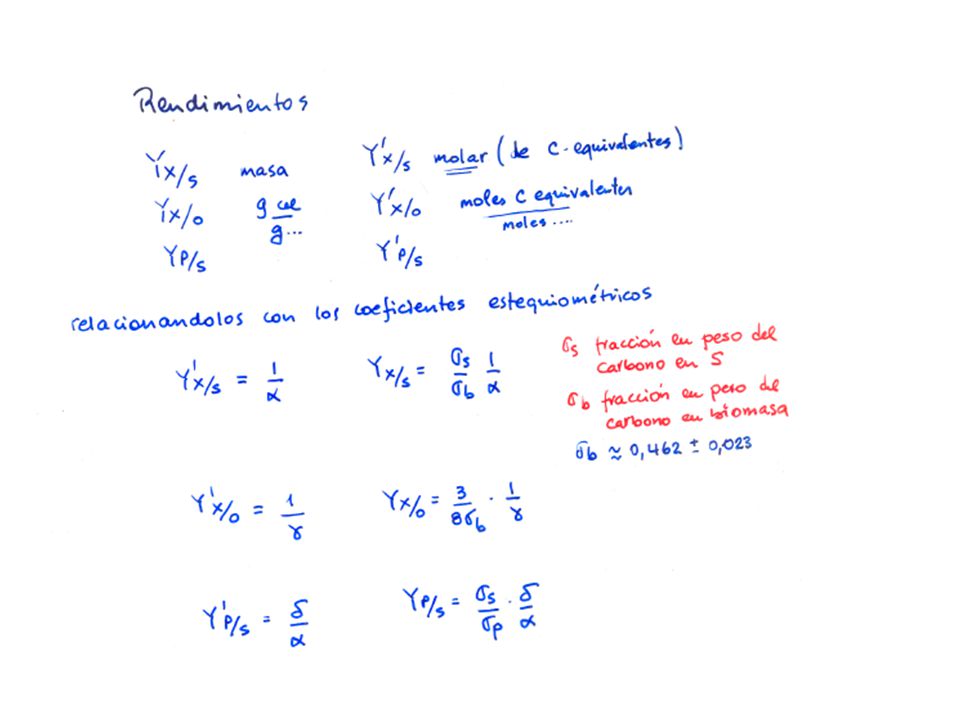 Rendimientos
Yx/s masa Y'x/s molar (de C-equivalentes)
Yx/o g cel / g... Y'x/o moles C equivalentes / moles ....
Yp/s Y'p/s
relacionandolos con los coeficientes estequiométricos
Y'x/s = 1/α Yx/s = σs/σb 1/α
σs fracción en peso del
carbono en S
σb fracción en peso del
carbono en biomasa
σb ≈ 0,462 ± 0,023
Y'x/o = 1/γ Yx/o = 3/8σb · 1/γ
Y'p/s = δ/α Yp/s = σs/σp · δ/α